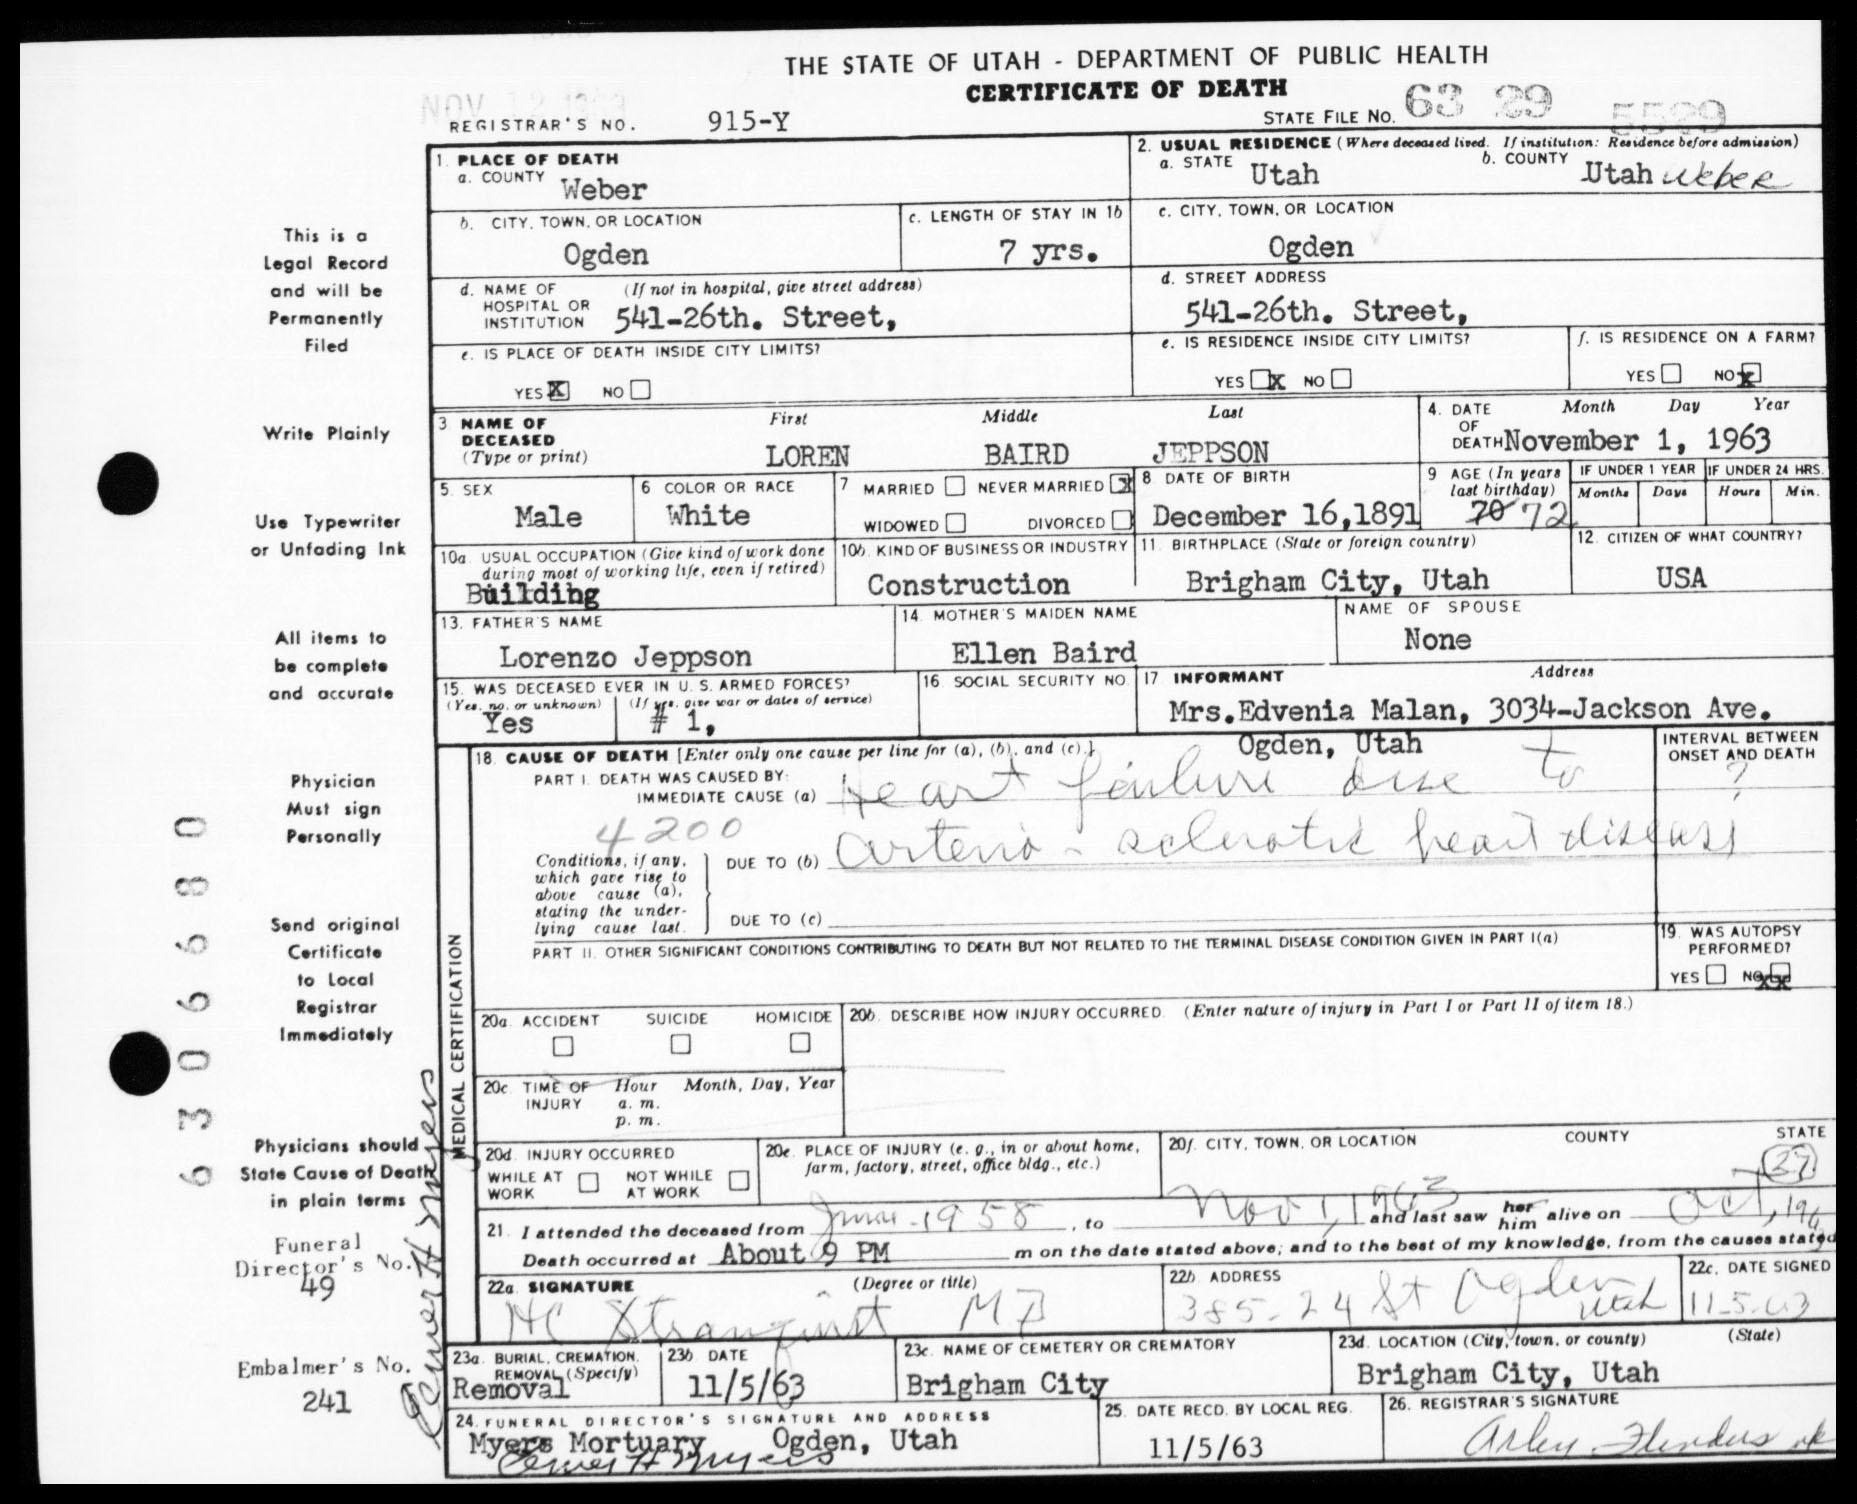 THE STATE OF UTAH - DEPARTMENT OF PUBLIC HEALTH
CERTIFICATE OF DEATH
NOV 12 1963
REGISTRAR'S NO. 915-Y
STATE FILE NO. 63 29 5529
1. PLACE OF DEATH
a. COUNTY Weber
2. USUAL RESIDENCE (Where deceased lived. If institution: Residence before admission)
a. STATE Utah b. COUNTY Utah Weber
b. CITY, TOWN, OR LOCATION
Ogden
c. LENGTH OF STAY IN 1b
7 yrs.
c. CITY, TOWN, OR LOCATION
Ogden
d. NAME OF HOSPITAL OR INSTITUTION (If not in hospital, give street address)
541-26th. Street,
d. STREET ADDRESS
541-26th. Street,
e. IS PLACE OF DEATH INSIDE CITY LIMITS?
YES X NO
e. IS RESIDENCE INSIDE CITY LIMITS?
YES X NO
f. IS RESIDENCE ON A FARM?
YES NO X
3. NAME OF DECEASED (Type or print)
First Middle Last
LOREN BAIRD JEPPSON
4. DATE OF DEATH Month Day Year
November 1, 1963
5. SEX
Male
6 COLOR OR RACE
White
7 MARRIED NEVER MARRIED X
WIDOWED DIVORCED
8 DATE OF BIRTH
December 16,1891
9 AGE (In years last birthday)
70 72
IF UNDER 1 YEAR IF UNDER 24 HRS.
Months Days Hours Min.
10a. USUAL OCCUPATION (Give kind of work done during most of working life, even if retired)
Building
10b. KIND OF BUSINESS OR INDUSTRY
Construction
11. BIRTHPLACE (State or foreign country)
Brigham City, Utah
12. CITIZEN OF WHAT COUNTRY?
USA
13. FATHER'S NAME
Lorenzo Jeppson
14. MOTHER'S MAIDEN NAME
Ellen Baird
NAME OF SPOUSE
None
15. WAS DECEASED EVER IN U. S. ARMED FORCES?
(Yes, no, or unknown) (If yes, give war or dates of service)
Yes # 1,
16. SOCIAL SECURITY NO.
17. INFORMANT Address
Mrs.Edvenia Malan, 3034-Jackson Ave.
Ogden, Utah
18. CAUSE OF DEATH [Enter only one cause per line for (a), (b), and (c).]
INTERVAL BETWEEN ONSET AND DEATH
PART I. DEATH WAS CAUSED BY:
IMMEDIATE CAUSE (a) Heart failure due to ?
4200
Conditions, if any, which gave rise to above cause (a), stating the underlying cause last.
DUE TO (b) Arterio-sclerotic heart disease
DUE TO (c)
PART II. OTHER SIGNIFICANT CONDITIONS CONTRIBUTING TO DEATH BUT NOT RELATED TO THE TERMINAL DISEASE CONDITION GIVEN IN PART I(a)
19. WAS AUTOPSY PERFORMED?
YES NO XX
MEDICAL CERTIFICATION
20a. ACCIDENT SUICIDE HOMICIDE
20b. DESCRIBE HOW INJURY OCCURRED. (Enter nature of injury in Part I or Part II of item 18.)
20c. TIME OF INJURY Hour Month, Day, Year
a. m.
p. m.
20d. INJURY OCCURRED
WHILE AT WORK NOT WHILE AT WORK
20e. PLACE OF INJURY (e. g., in or about home, farm, factory, street, office bldg., etc.)
20f. CITY, TOWN, OR LOCATION COUNTY STATE
37
21. I attended the deceased from June-1958, to Nov 1, 1963 and last saw her him alive on Oct, 196
Death occurred at About 9 PM m on the date stated above; and to the best of my knowledge, from the causes stated
22a. SIGNATURE (Degree or title)
HC Stranquist MD
22b. ADDRESS
385-24 St Ogden Utah
22c. DATE SIGNED
11-5-63
23a. BURIAL, CREMATION, REMOVAL (Specify)
Removal
23b DATE
11/5/63
23c. NAME OF CEMETERY OR CREMATORY
Brigham City
23d. LOCATION (City, town, or county) (State)
Brigham City, Utah
24. FUNERAL DIRECTOR'S SIGNATURE AND ADDRESS
Myers Mortuary Ogden, Utah
Elmer H Myers
25. DATE RECD. BY LOCAL REG.
11/5/63
26. REGISTRAR'S SIGNATURE
Arley Flinders
This is a
Legal Record
and will be
Permanently
Filed
Write Plainly
Use Typewriter
or Unfading Ink
All items to
be complete
and accurate
Physician
Must sign
Personally
Send original
Certificate
to Local
Registrar
Immediately
Physicians should
State Cause of Death
in plain terms
Funeral
Director's No.
49
Embalmer's No.
241
Elmer H Myers
6306680